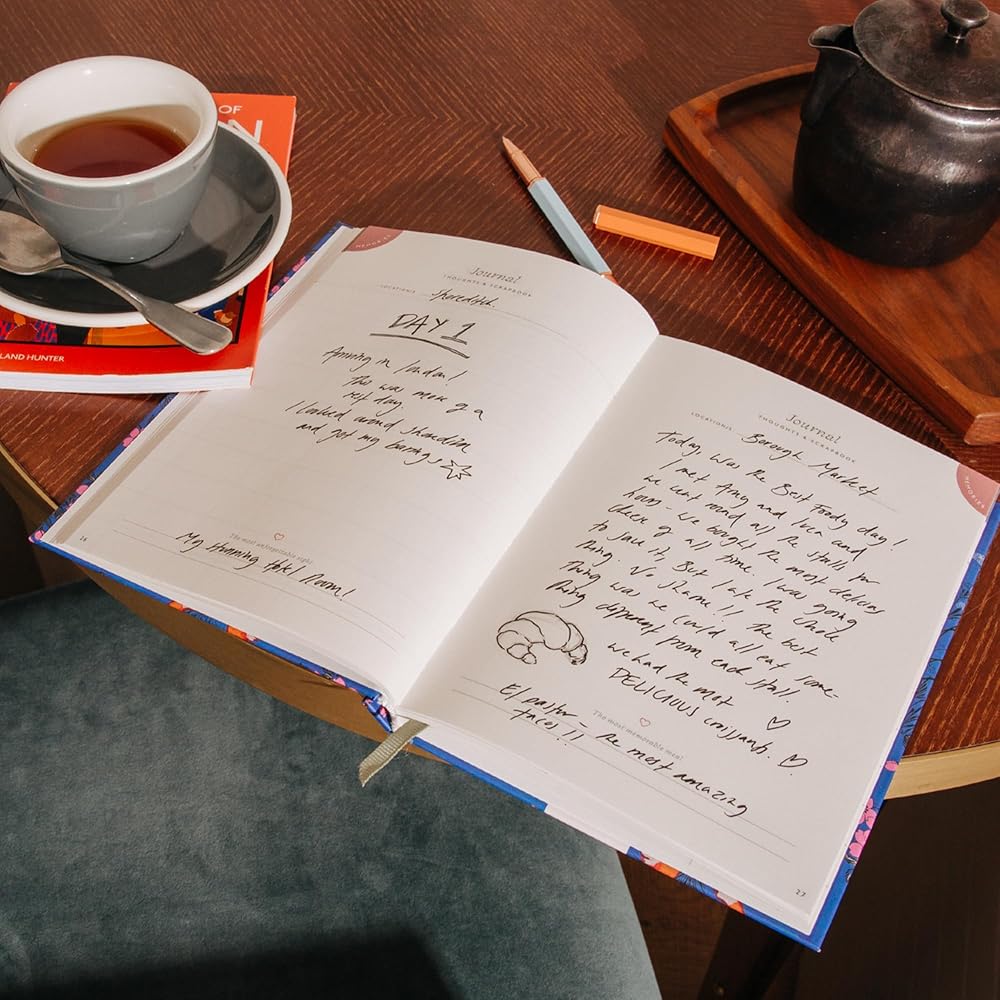 OF
N
LAND HUNTER
MEMORIES
Journal
THOUGHTS & SCRAPBOOK
LOCATIONS Shoreditch
DAY 1
Arriving in London!
This was more of a
rest day.
I looked around Shoreditch
and got my bearings
The most unforgettable sight
My stunning hotel room!
26
MEMORIES
Journal
THOUGHTS & SCRAPBOOK
LOCATIONS Borough Market
Today, was the Best Foody day!
I met Amy and Luca and
we went round all the stalls for
hours - we bought the most delicious
cheese of all time. I was going
to save it, But I ate the whole
thing. No shame!! The best
thing was we could all eat some-
thing different from each stall.
We had the most
DELICIOUS croissants.
The most memorable meal
El pastor - the most amazing
tacos!!
27